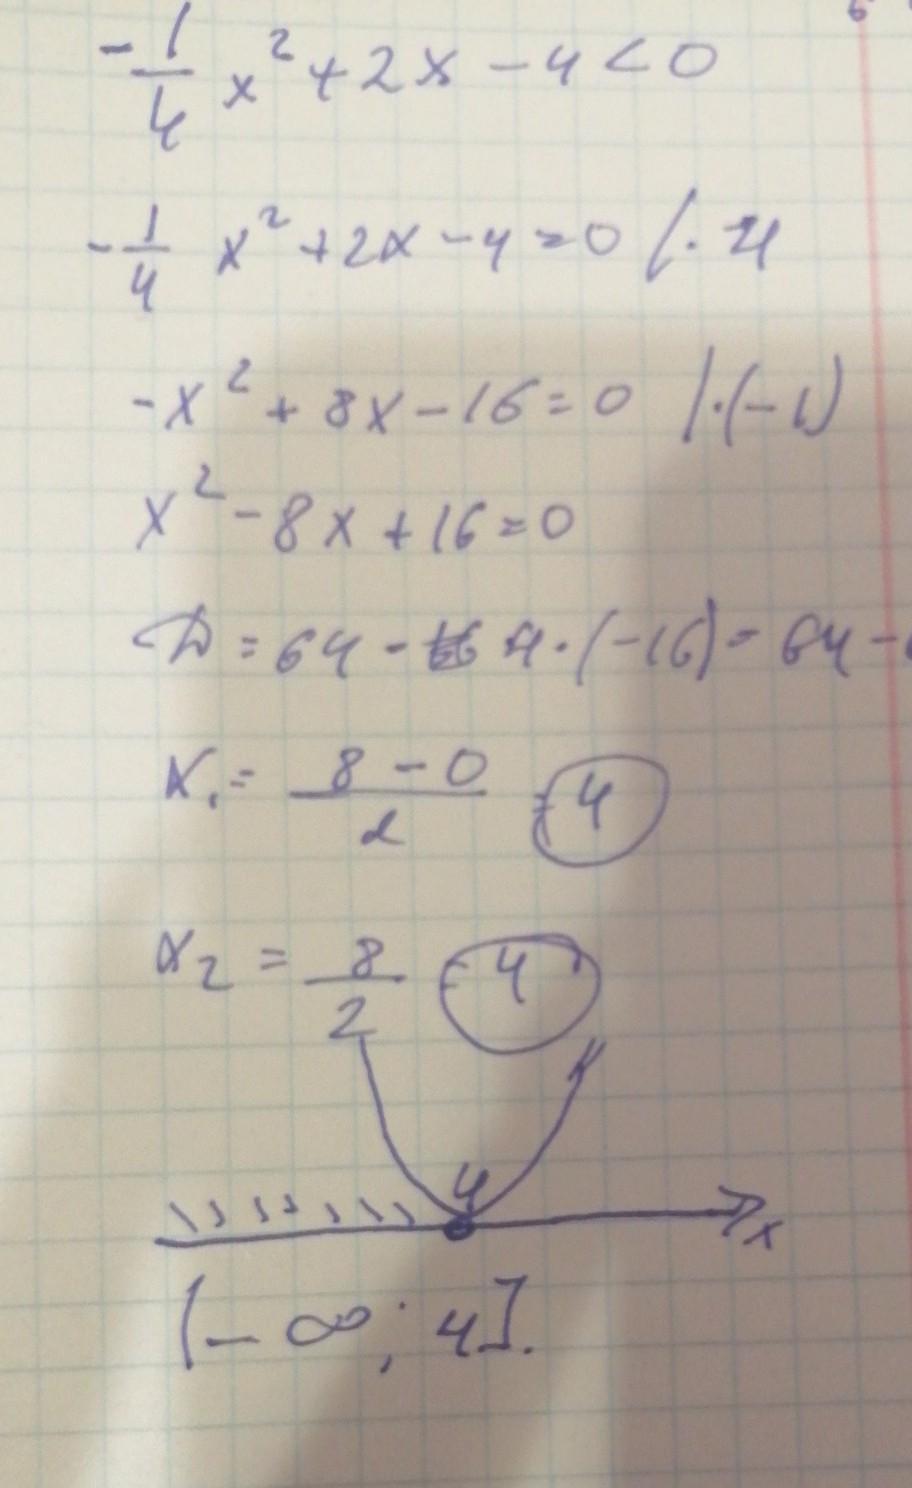 -1/4 x² + 2x - 4 < 0
-1/4 x² + 2x - 4 = 0 /· 4
-x² + 8x - 16 = 0 |·(-1)
x² - 8x + 16 = 0
D = 64 - 4·(-16) = 64 -
x₁ = (8 - 0)/2 = 4
x₂ = 8/2 = 4
4
x
(-∞; 4].